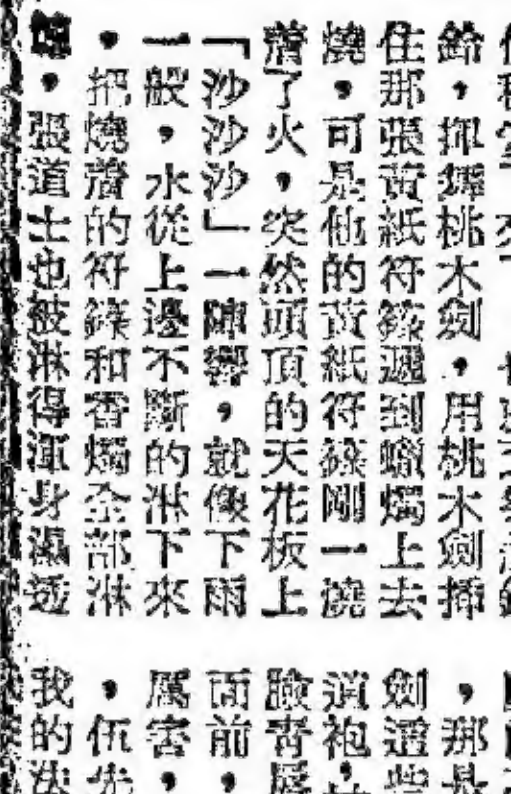 鈴，揮舞桃木劍，用桃木劍插
住那張黃紙符籙遞到蠟燭上去
燒，可是他的黃紙符籙剛一燒
着了火，突然頭頂的天花板上
「沙沙沙」一陣響，就像下雨
一般，水從上邊不斷的淋下來
，把燒着的符籙和香燭全部淋
，張道士也被淋得渾身濕透
，那是
劍這些
道袍，
臉青唇
面前，
厲害，
，伍先
我的法